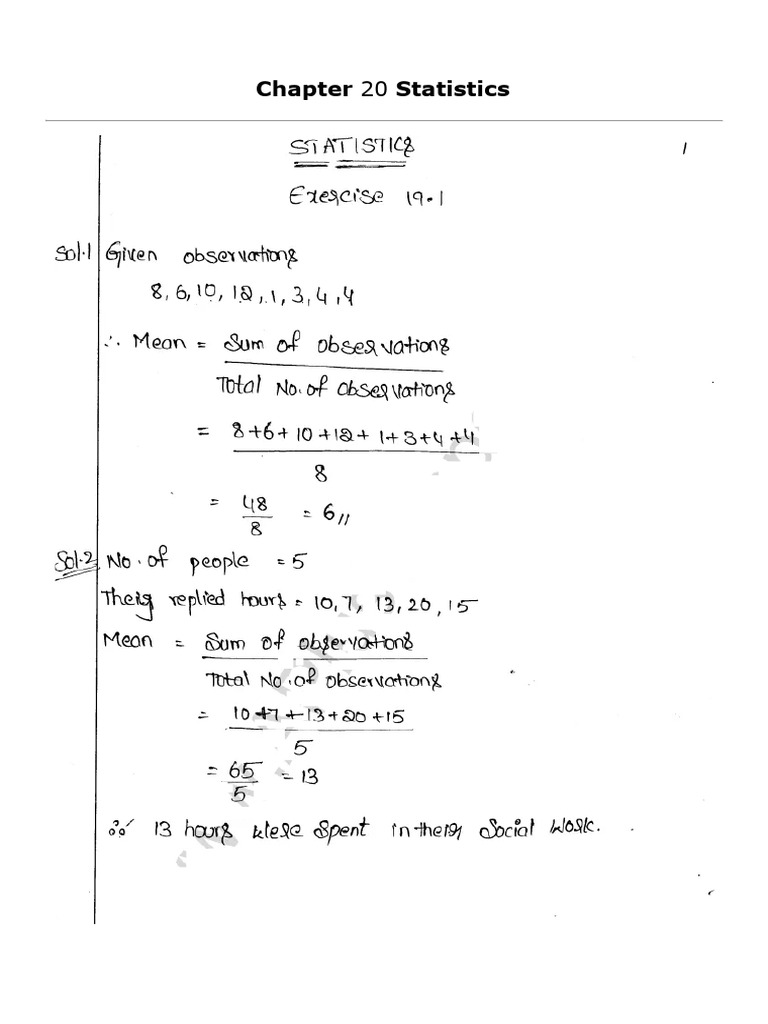 Chapter 20 Statistics
STATISTICS
1
Exercise 19.1
Sol.1 Given observations
8, 6, 10, 12, 1, 3, 4, 4
∴ Mean = Sum of observations
Total No. of observations
= 8+6+10+12+1+3+4+4
8
= 48
8
= 6//
Sol.2 No. of people = 5
Their replied hours = 10, 7, 13, 20, 15
Mean = Sum of observations
Total No. of observations
= 10+7+13+20+15
5
= 65
5
= 13
∴ 13 hours were spent in their social work.